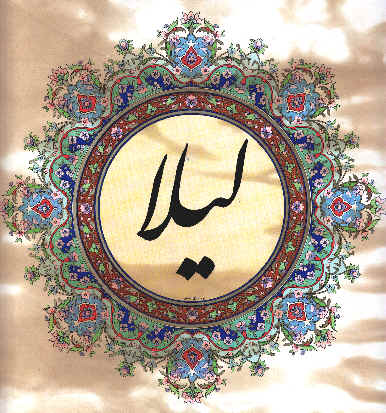 لیلا